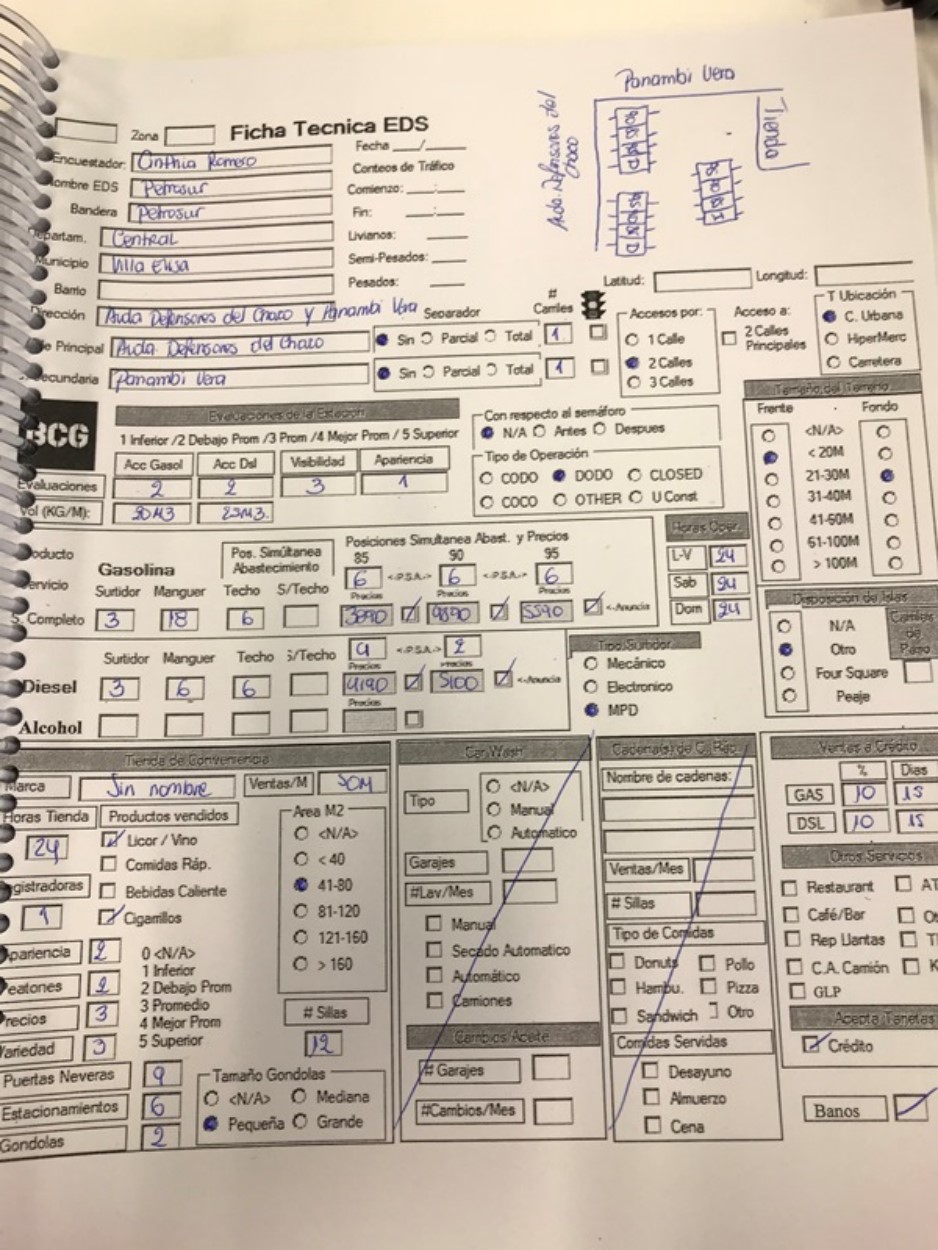 Panambi Vera
Avda. Defensores del Chaco
Tienda
Zona
Ficha Tecnica EDS
Encuestador: Cinthia Romero
Fecha ___/___
ombre EDS Petrosur
Conteos de Tráfico
Bandera Petrosur
Comienzo: __:__
Departam. Central
Fin: __:__
Municipio Villa elisa
Livianos:
Barrio
Semi-Pesados:
Pesados:
Latitud: Longitud:
Dirección Avda Defensores del Chaco y Panambi Vera
Separador
# Carriles
e Principal Avda. Defensores del Chaco
Sin Parcial Total 1
ecundaria Panambi Vera
Sin Parcial Total 1
Accesos por:
1 Calle
2 Calles
3 Calles
Acceso a:
2 Calles Principales
T Ubicación
C. Urbana
HiperMerc
Carretera
BCG
Evaluaciones de la Estacion
1 Inferior /2 Debajo Prom /3 Prom /4 Mejor Prom / 5 Superior
Acc Gasol Acc Dsl Visibilidad Apariencia
Evaluaciones 2 2 3 1
Vol (KG/M): 20M3 25M3.
Con respecto al semáforo
N/A Antes Despues
Tipo de Operación
CODO DODO CLOSED
COCO OTHER U Const
Tamaño del Terreno
Frente Fondo
<N/A>
< 20M
21-30M
31-40M
41-50M
51-100M
> 100M
oducto
ervicio
Gasolina
Pos. Simúltanea Abastecimiento
Posiciones Simultanea Abast. y Precios
85 90 95
6 <-P.S.A.-> 6 <-P.S.A.-> 6
Surtidor Manguer Techo S/Techo
Precios Precios Precios
S. Completo 3 18 6 3890 4890 5590 <-Anuncia
Horas Oper.
L-V 24
Sab 24
Dom 24
Surtidor Manguer Techo S/Techo
<-P.S.A.-> 2
Precios Precios
Diesel 3 6 6 4190 5100 <-Anuncia
Precios
Alcohol
Tipo Surtidor
Mecánico
Electronico
MPD
Disposición de Islas
N/A
Otro
Four Square
Peaje
Tienda de Conveniencia
Marca Sin nombre Ventas/M 50M
Horas Tienda 24
Productos vendidos
Licor / Vino
Comidas Ráp.
Bebidas Caliente
Cigarrillos
egistradoras 1
Area M2
<N/A>
< 40
41-80
81-120
121-160
> 160
pariencia 2
eatones 2
recios 3
Variedad 3
0 <N/A>
1 Inferior
2 Debajo Prom
3 Promedio
4 Mejor Prom
5 Superior
# Sillas
12
Puertas Neveras 9
Estacionamientos 6
Gondolas 2
Tamaño Gondolas
<N/A> Mediana
Pequeña Grande
Car Wash
Tipo
<N/A>
Manual
Automatico
Garajes
#Lav/Mes
Manual
Secado Automatico
Automático
Camiones
Cambios Aceite
# Garajes
#Cambios/Mes
Cadena(s) de C. Ráp.
Nombre de cadenas:
Ventas/Mes
# Sillas
Tipo de Comidas
Donuts Pollo
Hambu. Pizza
Sandwich Otro
Comidas Servidas
Desayuno
Almuerzo
Cena
Ventas a Crédito
% Dias
GAS 10 15
DSL 10 15
Otros Servicios
Restaurant AT
Café/Bar
Rep Llantas
C.A. Camión K
GLP
Acepta Tarjetas
Crédito
Banos